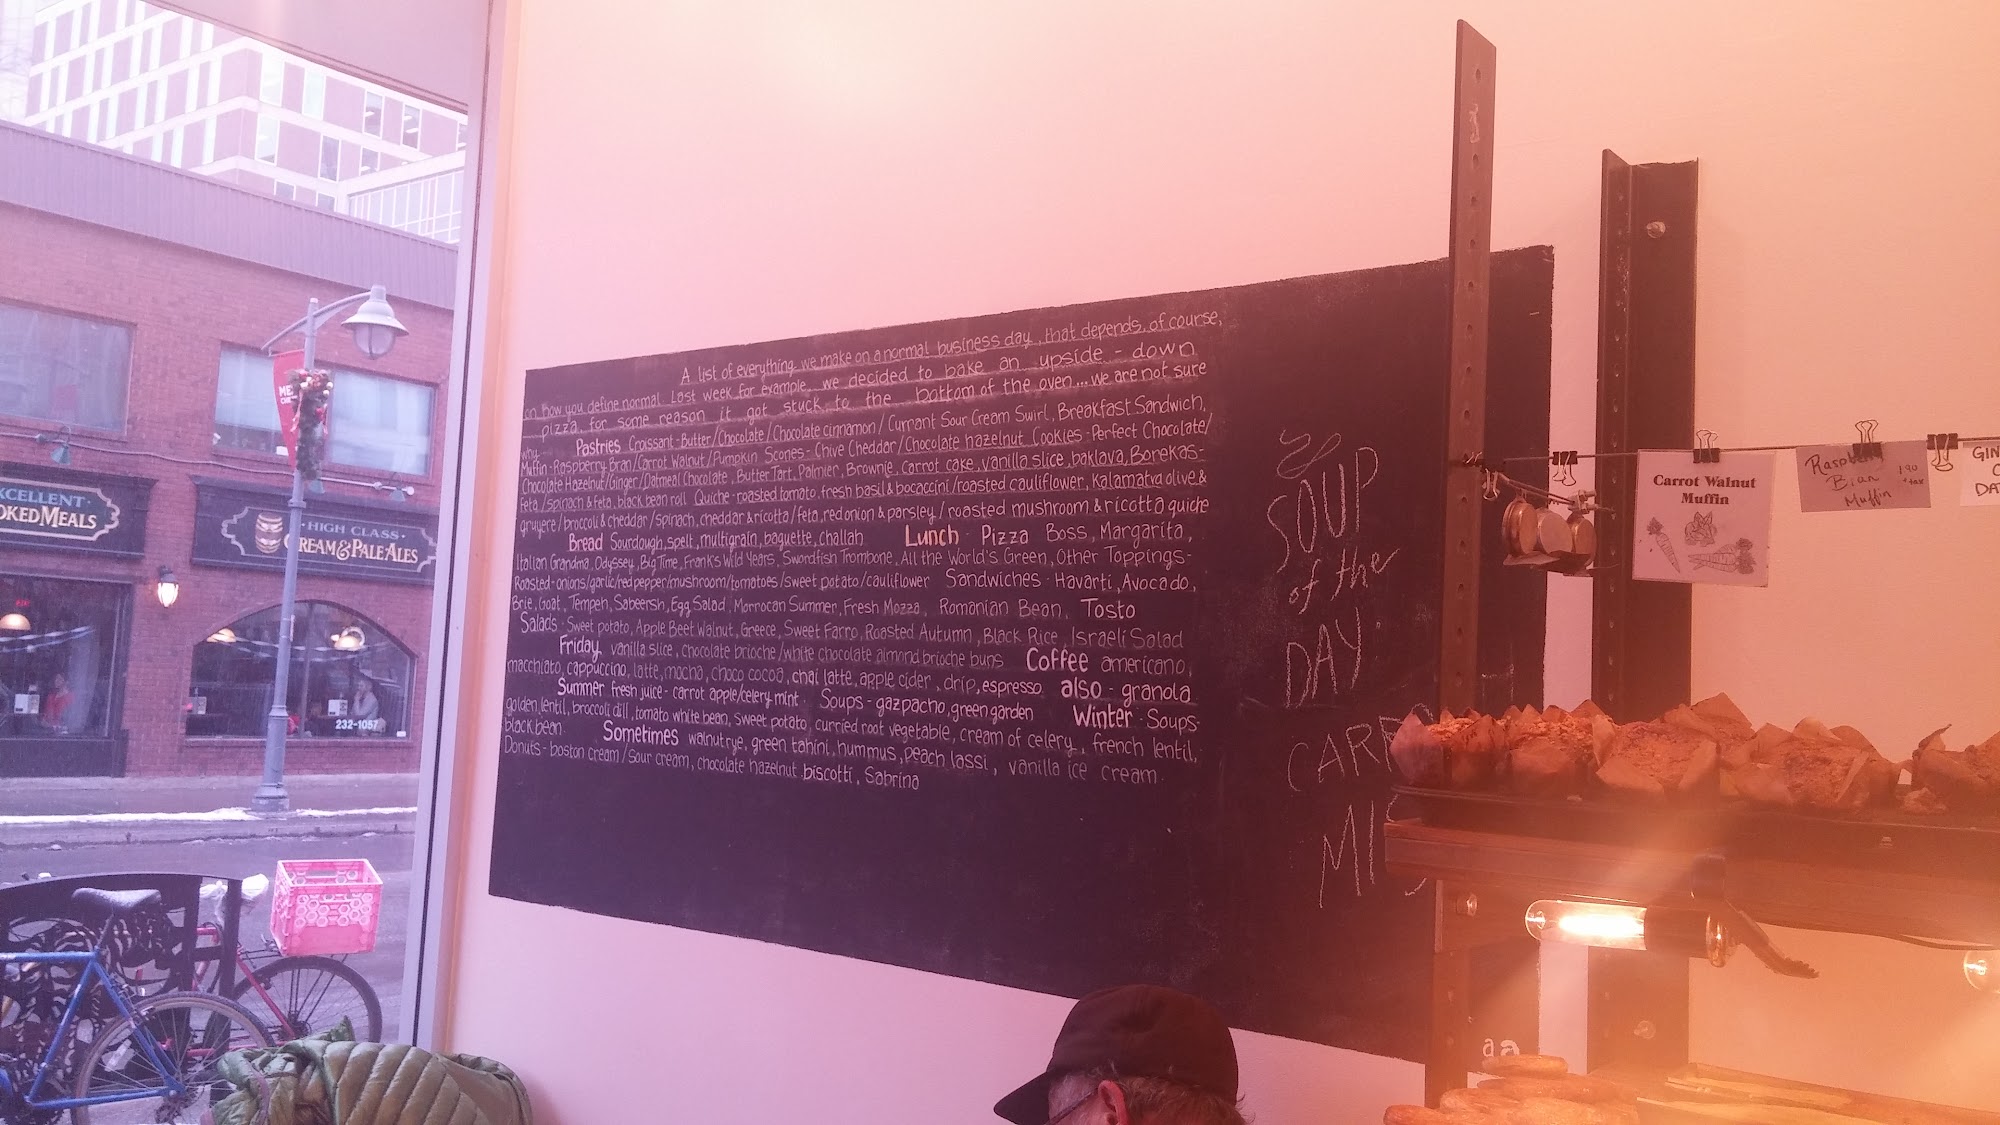 A list of everything we make on a normal business day, that depends, of course,
on how you define normal. Last week for example, we decided to bake an upside-down
pizza, for some reason it got stuck to the bottom of the oven... we are not sure
why. Pastries Croissant-Butter/Chocolate/Chocolate cinnamon/Currant Sour Cream Swirl, Breakfast Sandwich,
Muffin-Raspberry Bran/Carrot Walnut/Pumpkin Scones-Chive Cheddar/Chocolate hazelnut Cookies-Perfect Chocolate/
Chocolate Hazelnut/Ginger/Oatmeal Chocolate, Butter Tart, Palmier, Brownie, carrot cake, vanilla slice, baklava, Borekas-
feta/spinach & feta, black bean roll Quiche-roasted tomato, fresh basil & bocaccini/roasted cauliflower, Kalamatva olive &
gruyere/broccoli & cheddar/spinach, cheddar & ricotta/feta, red onion & parsley/roasted mushroom & ricotta quiche
Bread Sourdough, spelt, multigrain, baguette, challah Lunch - Pizza Boss, Margarita,
Italian Grandma, Odyssey, Big Time, Frank's Wild Years, Swordfish Trombone, All the World's Green, Other Toppings-
Roasted-onions/garlic/red pepper/mushroom/tomatoes/sweet potato/cauliflower Sandwiches - Havarti, Avocado,
Brie, Goat, Tempeh, Sabeersh, Egg Salad, Morrocan Summer, Fresh Mozza, Romanian Bean, Tosto
Salads - Sweet potato, Apple Beet Walnut, Greece, Sweet Farro, Roasted Autumn, Black Rice, Israeli Salad
Friday vanilla slice, chocolate brioche/white chocolate almond brioche buns Coffee americano,
macchiato, cappuccino, latte, mocha, choco cocoa, chai latte, apple cider, drip, espresso also - granola
Summer fresh juice - carrot apple/celery mint Soups - gazpacho, green garden Winter - Soups-
golden lentil, broccoli dill, tomato white bean, sweet potato, curried root vegetable, cream of celery, french lentil,
black bean Sometimes walnut rye, green tahini, hummus, peach lassi, vanilla ice cream.
Donuts - boston cream/sour cream, chocolate hazelnut biscotti, Sabrina
SOUP
of the
DAY
Carrot Walnut
Muffin
Raspberry
Bran
Muffin
1.90
+tax
HIGH CLASS
CREAM & PALE ALES
232-1057
aa